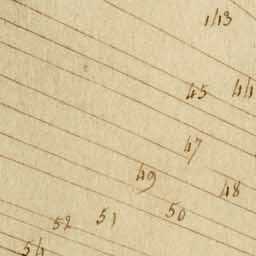 43
45 44
47
49 48
52 51 50
54